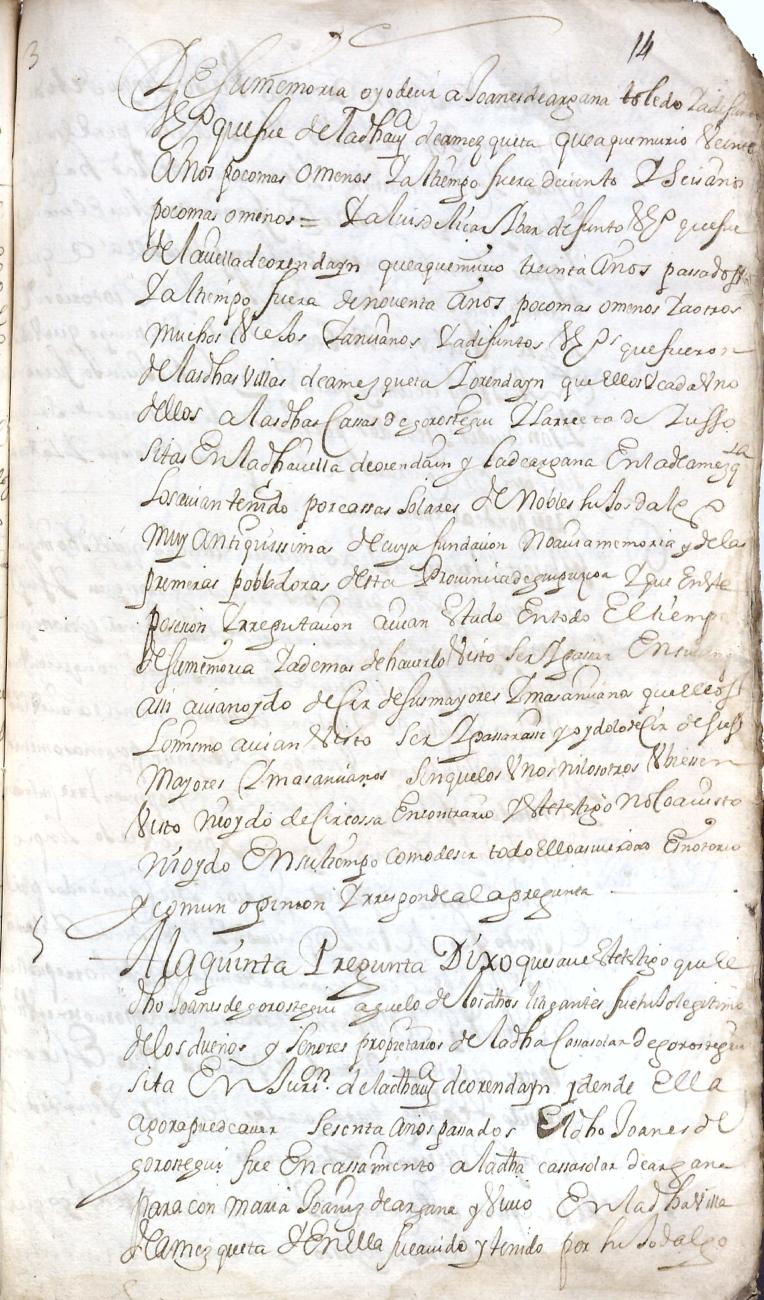 3
14
De su memoria oyo decir a Joanes de argana toledo ya difunto
Vzº que fue de la dha Vª de amezqueta que a que murio Veinte
Años poco mas o menos Y al tiempo fuera de ciento Y Seis anos
poco mas o menos = Y a luis de ybar difunto Vzº que fue
de la uilla de orendayn que a que murio treinta Años passados
Y al tiempo fuera de nouenta Años poco mas o menos Y a otros
muchos Viejos Y ancianos Ya difuntos Vzºs que fueron
de las dhas Villas de amezqueta Y orendayn que Ellos Y cada Vno
dellos a las dhas Cassas de gorostegui Y Larreta de Yusso
sitas En la dha uilla de orendayn y la de argana En la de amezqta
Los auian tenido por cassas Solares de Nobles hijos dalgo
Muy Antiquissimas de cuya fundacion No auia memoria y de las
primeras pobladoras desta Prouincia de guipuzcoa Y que En este
posesion Y rreputacion auian Estado En todo El tiempo
de su memoria Y ademas de hauerlo Visto ser Y passar En su tiempo
assi auian oydo decir de sus mayores Y mas ancianos que ellos
Lo mismo auian Visto Ser Y passar assi y oydolo decir de sus
Mayores Y mas ancianos Sin que los Vnos ni los otros Vbiessen
Visto ni oydo decir cossa En contrario Y este testigo No lo a uisto
ni oydo En su tiempo como de ser todo Ello assi uerdad Es notorio
y comun opinion Y rresponde a la pregunta
5
A la quinta Pregunta Dixo que saue Este testigo que El
dho Joanes de gorostegui aguelo de los dhos litigantes fue hijo legitimo
de los dueños y Señores propietarios de la dha Cassa solar de gorostegui
sita En Jurion. de la dha Vª de orendayn y dende Ella
agora puede auer Sesenta Años passados El dho Joanes de
gorostegui fue En cassamiento a la dha cassa solar de argana
para con maria Joaniz de argana y Viuio En la dha Villa
de Amezqueta Y En Ella fue auido y tenido por hijo dalgo